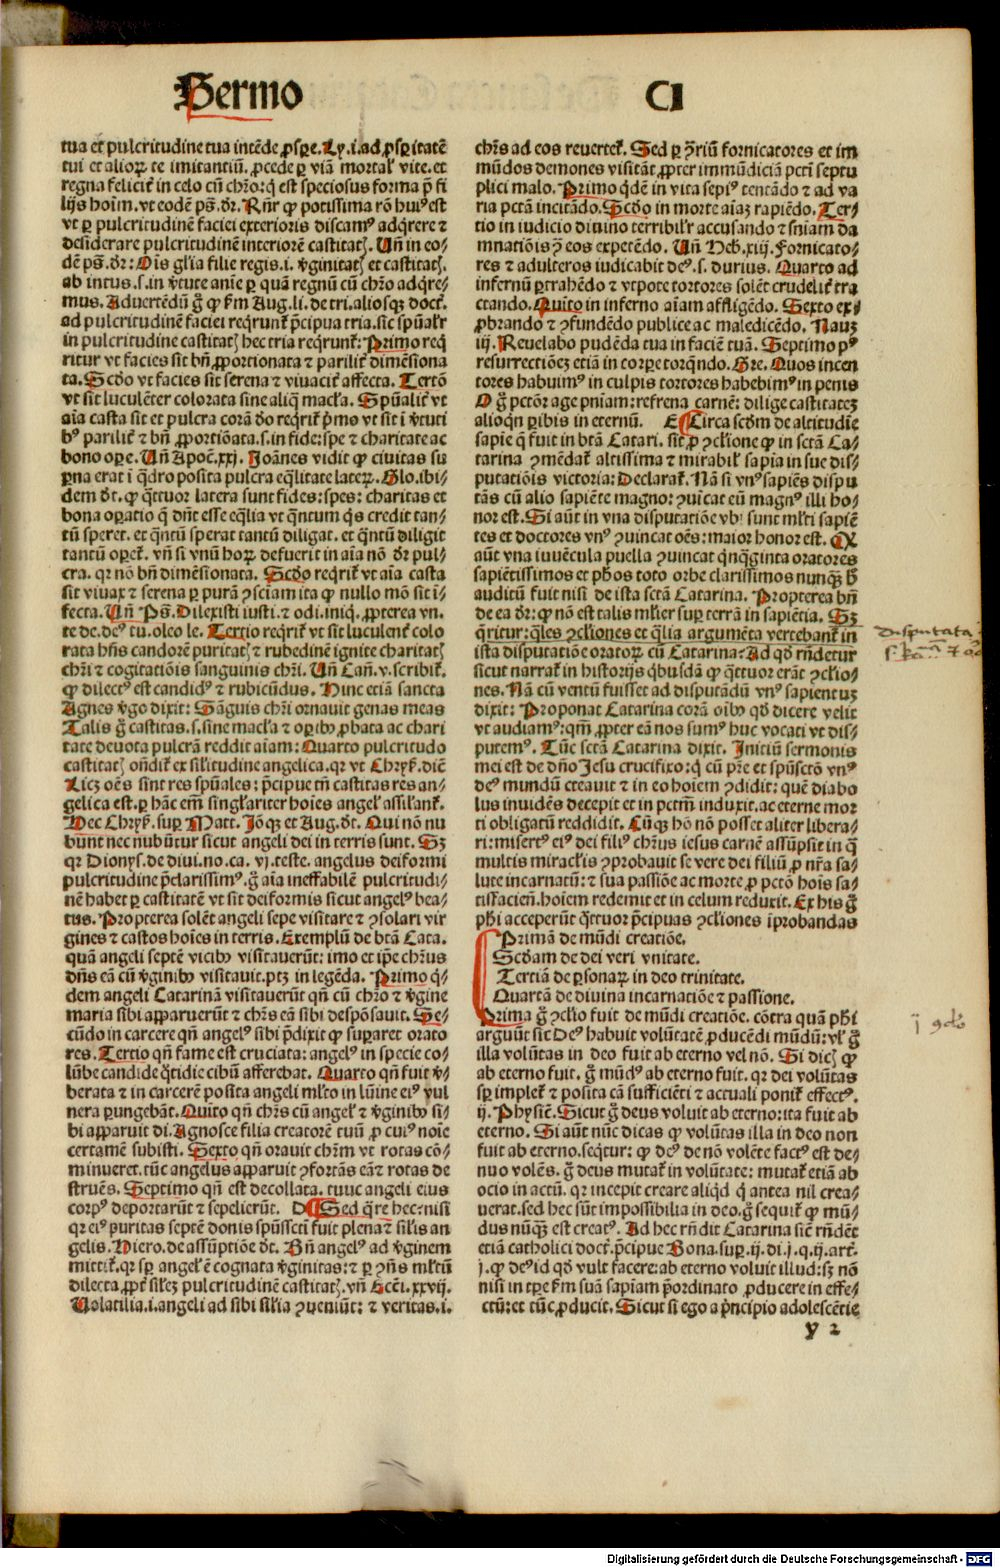 Sermo CI
tua et pulcritudine tua intēde ꝓsꝑe. Ly. i. ad ꝓsꝑitatē
tui et alioꝝ te imitantiū. ꝓcede ꝑ viā mortalˀ vite. et
regna felicit̄ in celo cū chr̄o: q̇ est speciosus forma p̄ fi
lijs hoīm. vt eodē ps̄. dr̄. Rn̄r ꝙ potissima rō huiꝰ est
vt ꝑ pulcritudinē faciei exterioris discamꝰ adq̇rere ⁊
desiderare pulcritudinē interiorē castitatꝭ. Un̄ in eo-
dē ps̄. dr̄: Oīs gl̄ia filie regis. i. v̄ginitatꝭ et castitatꝭ.
ab intus. s. in v̄tute anīe ꝑ quā regnū cū chr̄o adq̇re-
mus. Aduertēdū g̊ ꝙ ẜm Aug. li. de tri. aliosqꝫ doct̄.
ad pulcritudinē faciei req̇runt̄ p̄cipua tria. sic spūalˀr
in pulcritudine castitatꝭ hec tria req̇runt̄: Primo req̇
ritur vt facies sit bn̄ ꝓportionata ⁊ parilit̄ dimēsiona
ta. Scd̄o vt facies sit serena ⁊ viuacit̄ affecta. Tertō
vt sit luculēter colorata sine aliq̄ macl̄a. Spūalit̄ vt
aīa casta sit et pulcra corā d̄o req̇rit̄ p̄mo vt sit ī v̄tuti
bꝰ parilit̄ ⁊ bn̄ ꝓportiōata. s. in fide: spe ⁊ charitate ac
bono oꝑe. Un̄ Apoc̄. xxj. Joānes vidit ꝙ civitas su
ꝑna erat ī q̄dro posita pulcra eq̄litate lateꝝ. Glo. ibi-
dem d̄t. ꝙ q̄ttuor latera sunt fides: spes: charitas et
bona oꝑatio q̄ dn̄t esse eq̄lia vt q̄ntum q̇s credit tan-
tū speret. et q̄ntū sperat tantū diligat. et q̄ntū diligit
tantū oꝑet̄. vn̄ si vnū hoꝝ defuerit in aīa nō dr̄ pul-
cra. qr nō bn̄ dimēsionata. Scd̄o req̇rit̄ vt aīa casta
sit vivax ⁊ serena ꝑ purā ꝯsciam ita ꝙ nullo mō sit ī-
fecta. Un̄ Ps̄. Dilexisti iusti. ⁊ odi. iniq̇. ꝓpterea vn.
te de. deꝰ tu. oleo le. Tertio req̇rit̄ vt sit luculent̄ colo
rata hn̄s candorē puritatꝭ ⁊ rubedinē ignite charitatꝭ
chr̄i ⁊ cogitatiōis sanguinis chr̄i. Un̄ Can̄. v. scribit̄.
ꝙ dilectꝰ est candidꝰ ⁊ rubicūdus. Hinc etiā sancta
Agnes v̄go dixit: Sāguis chr̄i ornavit genas meas
Talis g̊ castitas. s. sine macl̄a ⁊ oꝑibꝰ ꝓbata ac chari
tate devota pulcrā reddit aīam: Quarto pulcritudo
castitatꝭ on̄dit̄ ex sīlitudine angelica. qr vt Chryẜ. diē
Licꝫ oēs sint res spūales: p̄cipue tn̄ castitas res an-
gelica est. ꝑ hāc em̄ singl̄ariter hoīes angelˀ assīlant̄.
Hec Chryẜ. suꝑ Matt. Jō qꝫ et Aug. d̄t. Qui nō nu
bunt nec nubūtur sicut angeli dei in terris sunt. Sꝫ
qr Dionys. de divi. no. ca. vj. teste. angelus deiformi
pulcritudine p̄clarissimꝰ. g̊ aīa ineffabilē pulcritudi-
nē habet ꝑ castitatē vt sit deiformis sicut angelꝰ bea-
tus. Propterea solēt angeli sepe visitare ⁊ ꝯsolari vir
gines ⁊ castos hoīes in terris. Exemplū de bt̄a Cata.
quā angeli septē vicibꝰ visitaverūt: imo et ip̄e chr̄us
dn̄s eā cū v̄ginibꝰ visitavit. ptꝫ in legēda. Primo q̇-
dem angeli Catarinā visitaverūt qn̄ cū chr̄o ⁊ v̄gine
maria sibi apparuerūt ⁊ chr̄s eā sibi despōsavit. Se-
cūdo in carcere qn̄ angelꝰ sibi p̄dixit ꝙ suꝑaret orato
res. Tertio qn̄ fame est cruciata: angelꝰ in specie co-
lūbe candide q̄tidie cibū afferebat. Quarto qn̄ fuit v̄-
berata ⁊ in carcerē posita angeli ml̄to in lūine eiꝰ vul
nera ꝑungebāt. Quīto qn̄ chr̄s cū angelˀ ⁊ v̄ginibꝰ si-
bi apparuit di. Agnosce filia creatorē tuū ꝓ cuiꝰ noīe
certamē subisti. Sexto qn̄ oravit chr̄m vt rotas cō-
minueret. tūc angelus apparuit ꝯfortās eā ⁊ rotas de
struēs. Septimo qn̄ est decollata. tuuc angeli eius
corpꝰ deportarūt ⁊ sepelierūt. D Sed q̄re hec: nisi
qr eiꝰ puritas septē donis spūsscti fuit plena ⁊ sīlis an
gelis. Hiero. de assūptiōe d̄t. Bn̄ angelꝰ ad v̄ginem
mittit̄. qr sꝑ angelˀ ē cognata v̄ginitas: ⁊ ꝑ ꝯn̄s ml̄tū
dilecta. ꝓpt̄ sil̄eꝫ pulcritudinē castitatꝭ. vn̄ Ecci. xxvij.
Volatilia. i. angeli ad sibi sīlia ꝯveniūt: ⁊ veritas. i.
chr̄s ad eos revertet̄. Sed ꝑ ꝯ̄riū fornicatores et im
mūdos demones visitāt ꝓpter immūdiciā pctī septu
plici malo. Primo q̇dē in vita sepiꝰ tentādo ⁊ ad va
ria pctā incitādo. Scd̄o in morte aīaꝫ rapiēdo. Ter-
tio in iudicio divino terribilˀr accusando ⁊ sn̄iam da
mnatiōis ꝯ̄ eos expetēdo. Un̄ Heb. xiij. Fornicato-
res ⁊ adulteros iudicabit deꝰ. s. durius. Quarto ad
infernū ꝑtrahēdo ⁊ vtpote tortores solēt crudelit̄ tra
ctando. Quīto in inferno aīam affligēdo. Sexto ex-
ꝓbrando ⁊ ꝯfundēdo publice ac maledicēdo. Nauꝫ
iij. Revelabo pudēda tua in faciē tuā. Septimo pꝰ
resurrectiōeꝫ etiā in corꝑe torq̄ndo. Gre. Quos incen
tores habuimꝰ in culpis tortores habebimꝰ in penis
O g̊ pctōr age pn̄iam: refrena carnē: dilige castitateꝫ
alioqn ꝑibis in eternū. E Circa scd̄m de altitudīe
sapīe q̄ fuit in bt̄a Catari. sit ꝓ ꝯclīone ꝙ in sctā Ca-
tarina ꝯmēdat̄ altissima ⁊ mirabilˀ sapīa in sue dis-
putatiōis victoria: Declarat̄. Nā si vnꝰ sapiēs dispu
tās cū alio sapiēte magno: ꝯuīcat eū magnꝰ illi ho-
nor est. Si aūt in vna disputatiōe vbi sunt ml̄ti sapiē
tes et doctores vnꝰ ꝯuincat oēs: maior honor est. Qꝫ
aūt vna iuvēcula puella ꝯuincat q̇nq̄ginta oratores
sapiētissimos et ph̄os toto orbe clarissimos nunqꝫ h̄
auditū fuit nisi de ista sctā Catarina. Propterea bn̄
de ea dr̄: ꝙ nō est talis ml̄ier suꝑ terrā in sapiētia. Sꝫ
q̄ritur: q̄les ꝯclīones et q̄lia argumēta vertebant̄ in
ista disputatiōe oratoꝝ cū Catarina: Ad qd̄ rn̄detur
sicut narrat̄ in historijs q̇busdā ꝙ q̄ttuor erāt ꝯclīo-
nes. Nā cū ventū fuisset ad disputādū vnꝰ sapientuꝫ
dixit: Proponat Catarina corā oībꝰ qd̄ dicere velit
vt audiamꝰ: qm̄ ꝓpter eā nos sumꝰ huc vocati vt dis-
putemꝰ. Tūc sctā Catarina dixit. Initiū sermonis
mei est de dn̄o Jesu crucifixo: q̇ cū pr̄e et spūsctō vnꝰ
deꝰ mundū creavit ⁊ in eo hoīem ꝯdidit: quē diabo
lus invidēs decepit et in pctm̄ induxit. ac eterne mor
ti obligatū reddidit. Cūqꝫ hō nō posset aliter libera-
ri: misertꝰ eiꝰ dei filiꝰ chr̄us iesus carnē assūpsit in q̄
multis miracl̄is ꝯprobavit se vere dei filiū ꝓ nr̄a sa-
lute incarnatū: ⁊ sua passiōe ac morte ꝓ pctō hoīs sa-
tisfaciēn. hoīem redemit et in celum reduxit. Ex his g̊
ph̄i acceperūt q̄ttuor p̄cipuas ꝯclīones īprobandas
Primā de mūdi creatiōe.
Scd̄am de dei veri vnitate.
Tertiā de ꝑsonaꝝ in deo trinitate.
Quartā de divina incarnatiōe ⁊ passione.
Prima g̊ ꝯclīo fuit de mūdi creatiōe. cōtra quā ph̄i
arguūt sic Deꝰ habuit volūtatē ꝓducēdi mūdū: vlˀ g̊
illa volūtas in deo fuit ab eterno vel nō. Si dicꝭ ꝙ
ab eterno fuit. g̊ mūdꝰ ab eterno fuit. qr dei volūtas
sꝑ implet̄ ⁊ posita cā sufficiēti ⁊ actuali ponit̄ effectꝰ.
ij. Physic̄. Sicut g̊ deus voluit ab eterno: ita fuit ab
eterno. Si aūt nūc dicas ꝙ volūtas illa in deo non
fuit ab eterno. seq̇tur: ꝙ deꝰ de nō volēte factꝰ est de-
nuo volēs. g̊ deus mutat̄ in volūtate: mutat̄ etiā ab
ocio in actū. qr incepit creare aliq̇d q̄ antea nil crea-
verat. sed hec sūt impossibilia in deo. g̊ sequit̄ ꝙ mū-
dus nūqꝫ est creatꝰ. Ad hec rn̄dit Catarina siē rn̄dēt
etiā catholici doct̄. p̄cipue Bona. suꝑ. ij. di. j. q. ij. art̄.
j. ꝙ deꝰ id qd̄ vult facere: ab eterno voluit illud: sꝫ nō
nisi in tꝑe ẜm suā sapīam p̄ordinato ꝓducere in effe-
ctū: et tūc ꝓducit. Sicut si ego a p̄ncipio adolescētie
y 2
disputata
Digitalisierung gefördert durch die Deutsche Forschungsgemeinschaft - DFG